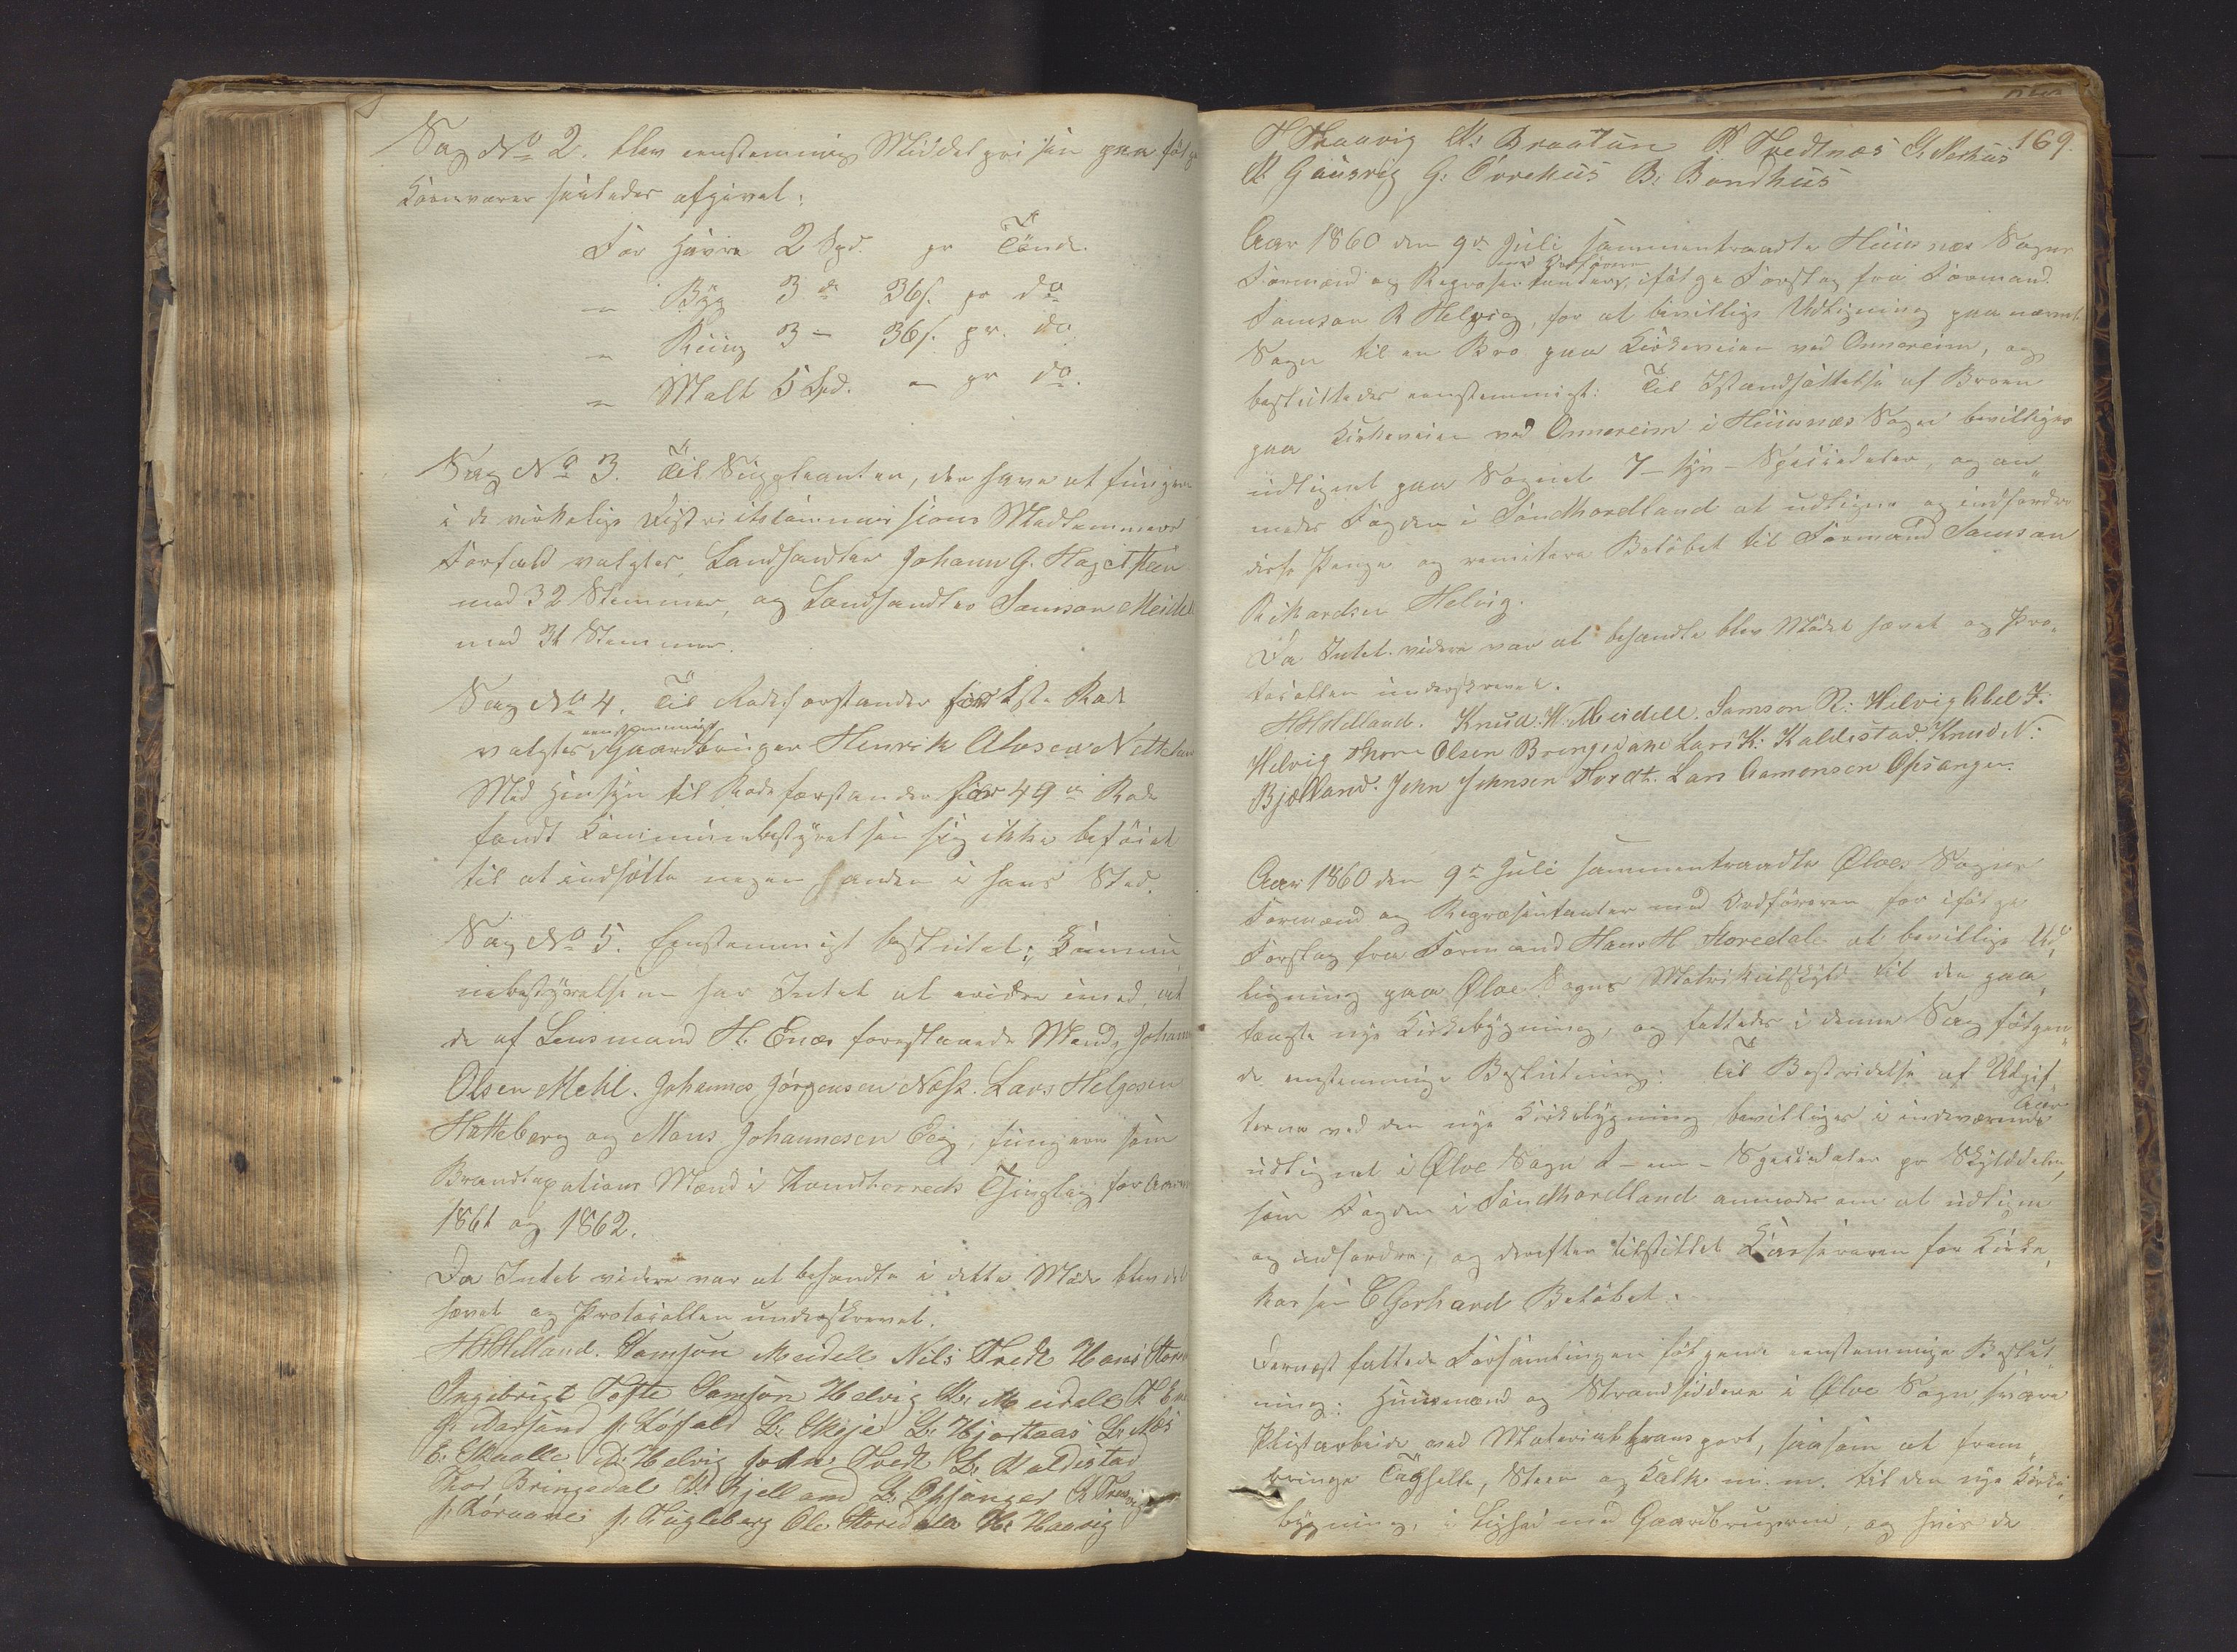 Sag No 2. blev eenstemmig Middelprisen paa følg
Kornvarer saaledes afgivet:
For Havre 2 Spd. pr Tønde.
" Byg 3 " 36 s. pr do
" Ruug 3 — 36 s. pr. do
" Malt 5 Spd. " pr do.
Sag No 3. Til Suppleanter, der have at fungere
i de virkelige Distriktskommissions Medlemmers
Forfald valgtes Landhandler Johann G. Hagelsteen
med 32 Stemmer, og Landhandler Samson Meidel
med 31 Stemmer.
Sag No 4. Til Rodeforstander for 1ste Rode
valgtes eenstemmigt Gaardbruger Henrik Olosen Netteland
Med Hensyn til Rodeforstander for 49de Rode
fandt Kommunebestyrelsen sig ikke beføiet
til at indsætte nogen anden i hans Sted.
Sag No 5. Eenstemmigt besluttet: Kommu„
nebestyrelsen har Intet at erindre imod, at
de af Lensmand H. Enes foreslaaede Mænd, Johann
Olsen Mehl. Johannes Jørgensen Næss. Lars Helgesen
Hatteberg og Mons Johannesen Eeg, fungere som
Brandtaxations Mænd i Kvindherreds Thinglag for Aarene
1861 og 1862.
Da Intet videre var at behandle i dette Møde blev det
hævet og Protocollen underskrevet.
HHHelland. Samson Meidell Nils Tvedt Hans Stored
Ingebrigt Tofte Samson Helvig K: Meidell T Ene
G: Dørsand J: Løfald L: Skeje L: Hjortaas L: Møs
E: Skaalle A: Helvig John Tvedt L: Kaldestad
Thor Bringedal K: Kjelland L: Opsanger
J: Røraane J: Fugleberg Ole Storedale H: Haavig
T Traavig K: Braatun P: Tvedtnæs G: Nerhus 169.
K Gausvig G: Øvrehus B: Bondhus
Aar 1860 den 9de Juli sammentraadte Huusnæs Sogns
Formænd og Repræsentanter med Ordføreren, ifølge Forslag fra Formand
Samson R Helvig, for at bevillige Udligning paa nævnte
Sogn til en Bro paa Kirkeveien ved Onnareim, og
besluttedes eenstemmigt: Til Istandsættelse af Broen
paa Kirkeveien ved Onnareim i Huusnæs Sogn bevilliges
udlignet paa Sognet 7 — syv — Speciedaler, og an„
modes Fogden i Søndhordland at udligne og indfordre
disse Penge og remitere Beløbet til Formand Samson
Rikardsen Helvig.
Da Intet videre var at behandle blev Mødet hævet og Pro„
tocollen underskrevet.
HHHelland. Knud. W. Meidell. Samson R: Helvig Abel J:
Helvig Thore Olsen Bringedahl Lars K: Kaldestad. Knud N:
Bjælland. John Johnsen Tvedt. Lars Aamonsen Opsanger.
Aar 1860 den 9de Juli sammentraadte Ølve Sogns
Formænd og Repræsentanter med Ordføreren for ifølge
Forslag fra Formand Hans H Storedale at bevillige Ud„
ligning paa Ølve Sogns Matrikulskyld til den paa„
tænkte nye Kirkebygning, og fattedes i denne Sag følgen„
de enstemmige Beslutning: Til Bestridelse af Udgif„
terne ved den nye Kirkebygning bevilliges i indeværende Aar
udlignet i Ølve Sogn 1 — en — Speciedaler pr Skylddaler,
som Fogden i Søndhordland anmodes om at udligne
og indfordre, og derefter tilstillet Kassereren for Kirke„
kassen C Gerhard Beløbet.
Dernæst fattede Forsamlingen følgende eenstemmige Beslut„
ning: Huusmænd og Strandsiddere i Ølve Sogn svare
Pligtarbeide ved Materialtransport, saasom at frem„
bringe Taghelle, Steen og Kalk m. m. til den nye Kirke„
bygning, i Lighed med Gaardbrugerne, og hvis de